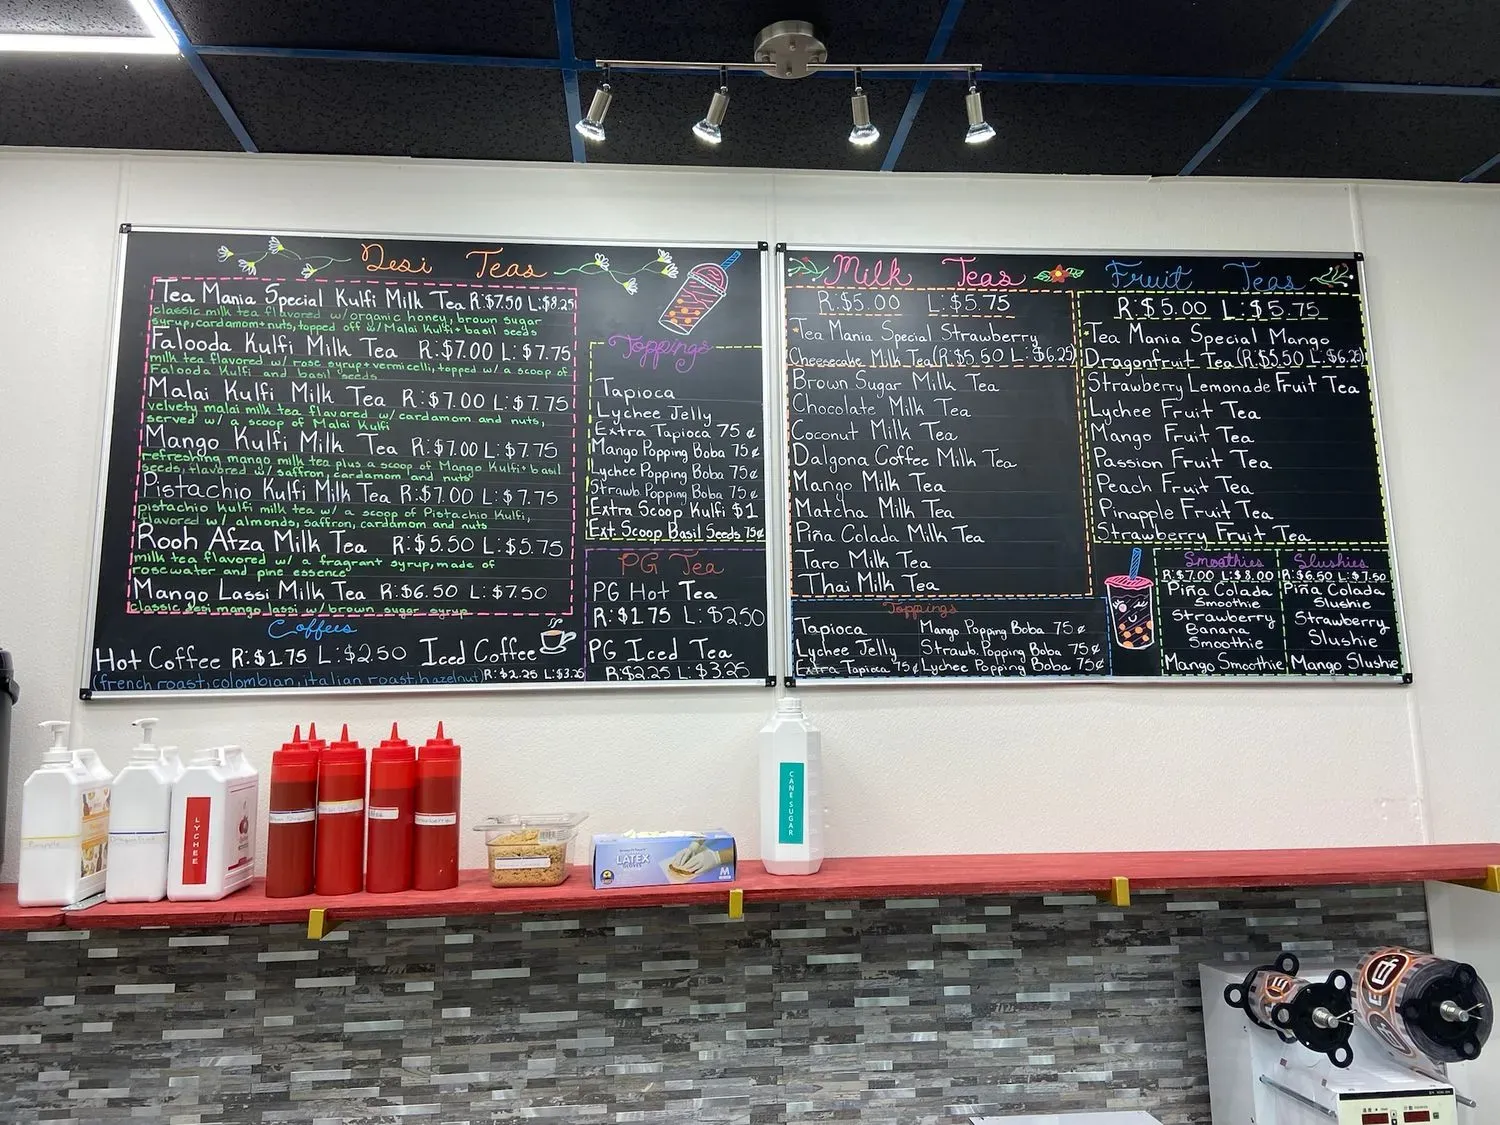 Desi Teas
Tea Mania Special Kulfi Milk Tea R:$7.50 L:$8.25
classic milk tea flavored w/organic honey, brown sugar
syrup, cardamom+nuts, topped off w/ Malai Kulfi+ basil seeds
Falooda Kulfi Milk Tea R:$7.00 L:$7.75
milk tea flavored w/ rose syrup+vermicelli, topped w/ a scoop of
Falooda Kulfi and basil seeds
Malai Kulfi Milk Tea R:$7.00 L:$7.75
velvety malai milk tea flavored w/ cardamom and nuts,
served w/ a scoop of Malai Kulfi
Mango Kulfi Milk Tea R:$7.00 L:$7.75
refreshing mango milk tea plus a scoop of Mango Kulfi+ basil
seeds, flavored w/ saffron, cardamom and nuts
Pistachio Kulfi Milk Tea R:$7.00 L:$7.75
pistachio kulfi milk tea w/ a scoop of Pistachio Kulfi,
flavored w/ almonds, saffron, cardamom and nuts
Rooh Afza Milk Tea R:$5.50 L:$5.75
milk tea flavored w/ a fragrant syrup, made of
rosewater and pine essence
Mango Lassi Milk Tea R:$6.50 L:$7.50
classic desi mango lassi w/ brown sugar syrup
Coffees
Hot Coffee R:$1.75 L:$2.50 Iced Coffee
(french roast, colombian, italian roast, hazelnut) R:$2.25 L:$3.25
Toppings
Tapioca
Lychee Jelly
Extra Tapioca 75¢
Mango Popping Boba 75¢
Lychee Popping Boba 75¢
Strawb. Popping Boba 75¢
Extra Scoop Kulfi $1
Ext. Scoop Basil Seeds 75¢
PG Tea
PG Hot Tea
R:$1.75 L:$2.50
PG Iced Tea
R:$2.25 L:$3.25
Milk Teas
R:$5.00 L:$5.75
*Tea Mania Special Strawberry
Cheesecake Milk Tea (R:$5.50 L:$6.25)
Brown Sugar Milk Tea
Chocolate Milk Tea
Coconut Milk Tea
Dalgona Coffee Milk Tea
Mango Milk Tea
Matcha Milk Tea
Piña Colada Milk Tea
Taro Milk Tea
Thai Milk Tea
Toppings
Tapioca Mango Popping Boba 75¢
Lychee Jelly Strawb. Popping Boba 75¢
Extra Tapioca 75¢ Lychee Popping Boba 75¢
Fruit Teas
R:$5.00 L:$5.75
*Tea Mania Special Mango
Dragonfruit Tea (R:$5.50 L:$6.25)
Strawberry Lemonade Fruit Tea
Lychee Fruit Tea
Mango Fruit Tea
Passion Fruit Tea
Peach Fruit Tea
Pinapple Fruit Tea
Strawberry Fruit Tea
Smoothies
R:$7.00 L:$8.00
Piña Colada
Smoothie
Strawberry
Banana
Smoothie
Mango Smoothie
Slushies
R:$6.50 L:$7.50
Piña Colada
Slushie
Strawberry
Slushie
Mango Slushie
LYCHEE
LATEX
M
CANE SUGAR